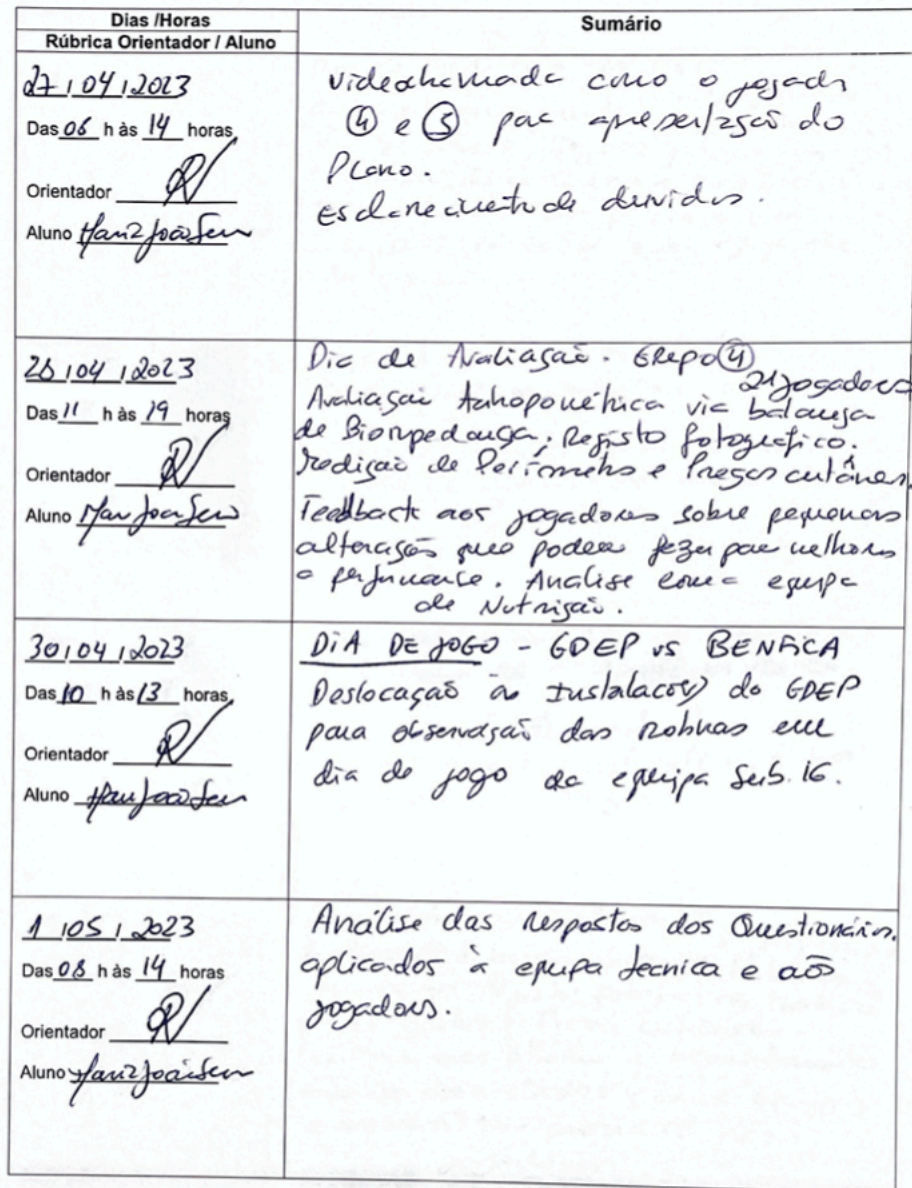 Dias /Horas
Rúbrica Orientador / Aluno
Sumário
27 / 04 / 2023
Das 06 h às 14 horas
Orientador
Aluno
videochamada como o jogador
④ e ⑤ para apresentação do
Plano.
Esclarecimento de duvidas.
28 / 04 / 2023
Das 11 h às 19 horas
Orientador
Aluno
Dia de Avaliação - GRupo ④
21 jogadores
Avaliação Antropométrica via balança
de Bioimpedança; Registo fotografico.
Medição de Perímetros e Pregas cutâneas.
Feedback aos jogadores sobre pequenas
alterações que podem fazer para melhorar
a performance. Analise com a equipa
de Nutrição.
30 / 04 / 2023
Das 10 h às 13 horas
Orientador
Aluno
DIA DE JOGO - GDEP vs BENFICA
Deslocação às Instalações do GDEP
para observação das rotinas em
dia de jogo da equipa Sub.16.
1 / 05 / 2023
Das 08 h às 14 horas
Orientador
Aluno
Análise das respostas dos Questionários.
aplicados à equipa tecnica e aos
jogadores.